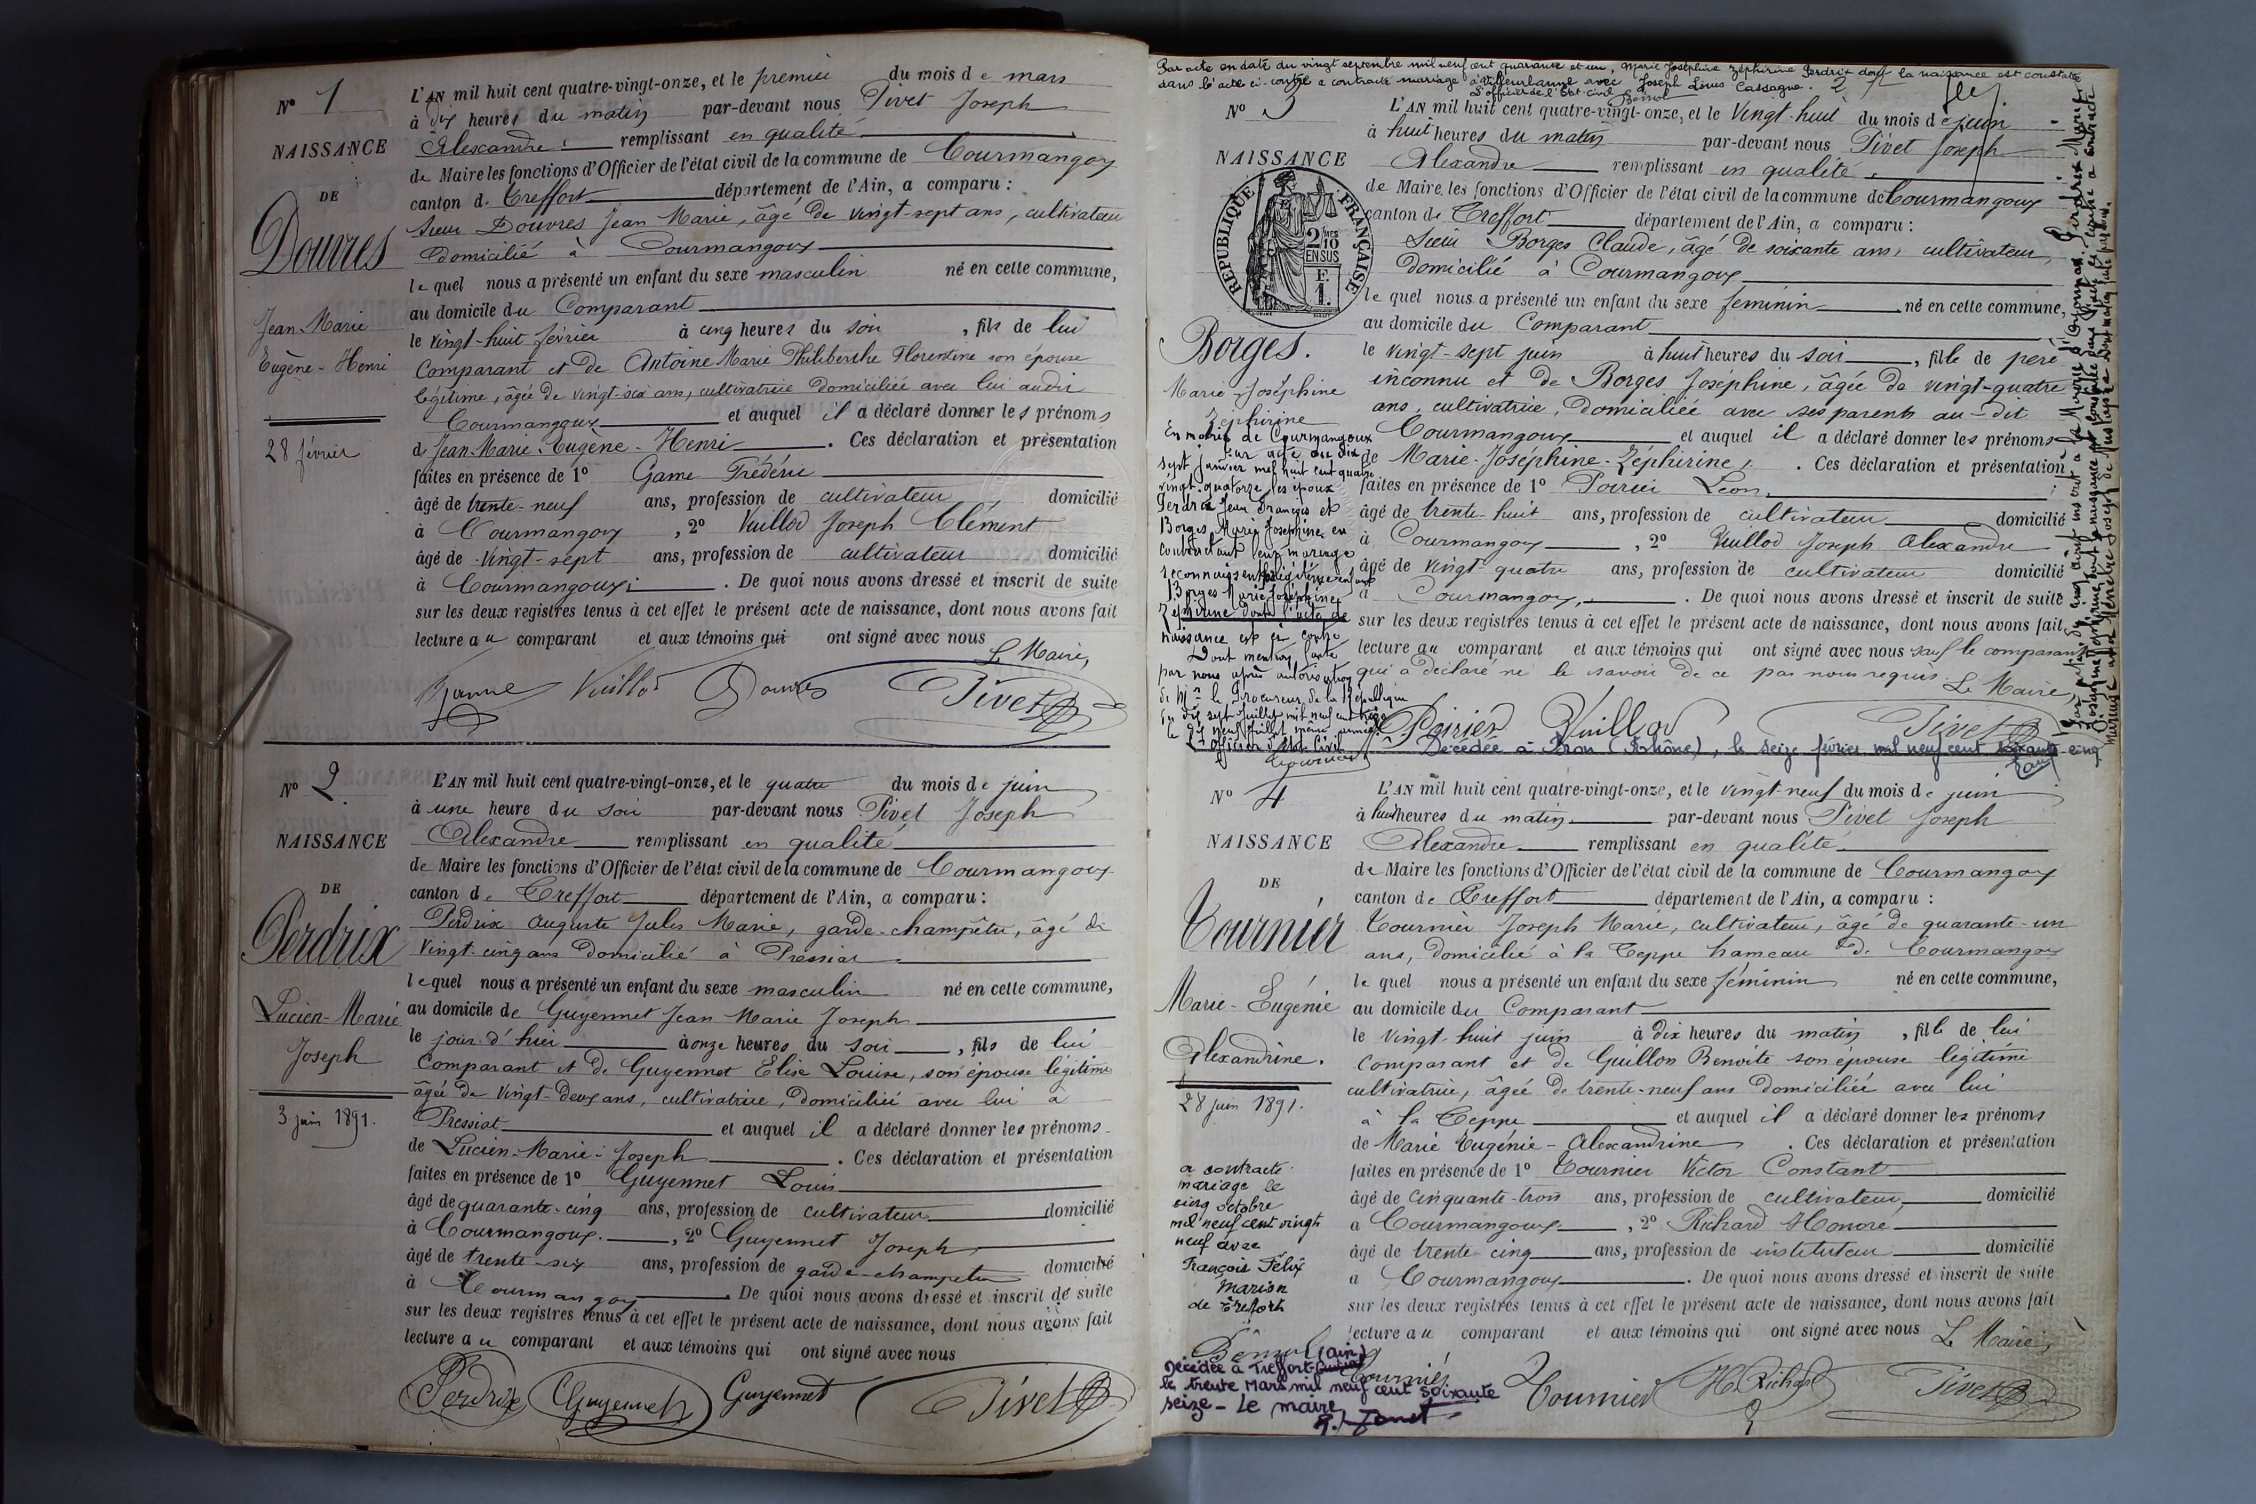 N° 1
NAISSANCE
DE
Douvres
Jean Marie
Eugène-Henri
28 février
L'AN mil huit cent quatre-vingt-onze, et le premier du mois de mars
à dix heures du matin par-devant nous Pivet Joseph
Alexandre remplissant en qualité
de Maire les fonctions d'Officier de l'état civil de la commune de Courmangoux
canton de Treffort département de l'Ain, a comparu :
Sieur Douvres Jean Marie, âgé de vingt-sept ans, cultivateur
domicilié à Courmangoux
lequel nous a présenté un enfant du sexe masculin né en cette commune,
au domicile du Comparant
le vingt-huit février à cinq heures du soir, fils de lui
Comparant et de Antoine Marie Philiberthe Florentine son épouse
légitime, âgée de vingt-six ans, cultivatrice domiciliée avec lui audit
Courmangoux et auquel il a déclaré donner les prénoms
de Jean-Marie-Eugène-Henri. Ces déclaration et présentation
faites en présence de 1° Game Frédéric
âgé de trente-neuf ans, profession de cultivateur domicilié
à Courmangoux, 2° Vuillod Joseph Clément
âgé de vingt-sept ans, profession de cultivateur domicilié
à Courmangoux. De quoi nous avons dressé et inscrit de suite
sur les deux registres tenus à cet effet le présent acte de naissance, dont nous avons fait
lecture au comparant et aux témoins qui ont signé avec nous
Le Maire,
Game Vuillod Douvres Pivet
N° 2
NAISSANCE
DE
Perdrix
Lucien-Marie
Joseph
3 juin 1891.
L'AN mil huit cent quatre-vingt-onze, et le quatre du mois de juin
à une heure du soir par-devant nous Pivet Joseph
Alexandre remplissant en qualité
de Maire les fonctions d'Officier de l'état civil de la commune de Courmangoux
canton de Treffort département de l'Ain, a comparu :
Perdrix Auguste Jules Marie, garde-champêtre, âgé de
vingt-cinq ans domicilié à Pressiat
lequel nous a présenté un enfant du sexe masculin né en cette commune,
au domicile de Guyennet Jean Marie Joseph
le jour d'hier à onze heures du soir, fils de lui
Comparant et de Guyennet Elise Louise, son épouse légitime
âgée de vingt-deux ans, cultivatrice, domiciliée avec lui à
Pressiat et auquel il a déclaré donner les prénoms
de Lucien-Marie-Joseph. Ces déclaration et présentation
faites en présence de 1° Guyennet Louis
âgé de quarante-cinq ans, profession de cultivateur domicilié
à Courmangoux, 2° Guyennet Joseph
âgé de trente-six ans, profession de garde-champêtre domicilié
à Courmangoux. De quoi nous avons dressé et inscrit de suite
sur les deux registres tenus à cet effet le présent acte de naissance, dont nous avons fait
lecture au comparant et aux témoins qui ont signé avec nous
Perdrix Guyennet Guyennet Pivet
Par acte en date du vingt septembre mil neuf cent quarante et un, Marie Joséphine Zéphirine Perdrix dont la naissance est constatée
dans l'acte ci-contre a contracté mariage à Villeurbanne avec Joseph Louis Cassagne.
L'officier de l'Etat-civil
N° 3
NAISSANCE
REPUBLIQUE FRANÇAISE
2 10 MES
EN SUS
Borges.
Marie-Joséphine
Zéphirine
En mairie de Courmangoux
par acte du dix
sept janvier mil huit cent quatre
vingt-quatorze les époux
Perdrix Jean François et
Borges Marie Joséphine en
contractant leur mariage
reconnaissent légitime enfant
Borges Marie Joséphine
Zéphirine dont l'acte de
naissance est ci contre
Dont mention faite
par nous après autorisation
de Mr le Procureur de la République
du dix sept Juillet mil neuf cent treize
le dix neuf Juillet même année
L'officier d'état civil
L'AN mil huit cent quatre-vingt-onze, et le vingt-huit du mois de juin
à huit heures du matin par-devant nous Pivet Joseph
Alexandre remplissant en qualité
de Maire les fonctions d'Officier de l'état civil de la commune de Courmangoux
canton de Treffort département de l'Ain, a comparu :
Sieur Borges Claude, âgé de soixante ans, cultivateur,
domicilié à Courmangoux
lequel nous a présenté un enfant du sexe féminin né en cette commune,
au domicile du Comparant
le vingt-sept juin à huit heures du soir, fille de père
inconnu et de Borges Joséphine, âgée de vingt-quatre
ans, cultivatrice, domiciliée avec ses parents au-dit
Courmangoux et auquel il a déclaré donner les prénoms
de Marie-Joséphine-Zéphirine. Ces déclaration et présentation
faites en présence de 1° Poirier Léon
âgé de trente-huit ans, profession de cultivateur domicilié
à Courmangoux, 2° Vuillod Joseph Alexandre
âgé de vingt quatre ans, profession de cultivateur domicilié
à Courmangoux. De quoi nous avons dressé et inscrit de suite
sur les deux registres tenus à cet effet le présent acte de naissance, dont nous avons fait
lecture au comparant et aux témoins qui ont signé avec nous sauf le comparant
qui a déclaré ne le savoir de ce par nous requis.
Le Maire,
Poirier Vuillod Pivet
Décédée à Bron (Rhône), le seize février mil neuf cent soixante-cinq
N° 4
NAISSANCE
DE
Tournier
Marie-Eugénie
Alexandrine.
28 juin 1891.
a contracté
mariage le
cinq octobre
mil neuf cent vingt
neuf avec
François Félix
Marion
de Treffort
L'AN mil huit cent quatre-vingt-onze, et le vingt-neuf du mois de juin
à huit heures du matin par-devant nous Pivet Joseph
Alexandre remplissant en qualité
de Maire les fonctions d'Officier de l'état civil de la commune de Courmangoux
canton de Treffort département de l'Ain, a comparu :
Tournier Joseph Marie, cultivateur, âgé de quarante-un
ans, domicilié à la Teppe hameau de Courmangoux
lequel nous a présenté un enfant du sexe féminin né en cette commune,
au domicile du Comparant
le vingt-huit juin à dix heures du matin, fille de lui
Comparant et de Guillon Benoite son épouse légitime
cultivatrice, âgée de trente-neuf ans domiciliée avec lui
à la Teppe et auquel il a déclaré donner les prénoms
de Marie Eugénie-Alexandrine. Ces déclaration et présentation
faites en présence de 1° Tournier Victor Constant
âgé de cinquante-trois ans, profession de cultivateur, domicilié
à Courmangoux, 2° Richard Honoré
âgé de trente-cinq ans, profession de instituteur domicilié
à Courmangoux. De quoi nous avons dressé et inscrit de suite
sur les deux registres tenus à cet effet le présent acte de naissance, dont nous avons fait
lecture au comparant et aux témoins qui ont signé avec nous
Le Maire,
Tournier Tournier H Richard Pivet
Décédée à Treffort (Ain)
le trente Mars mil neuf cent soixante
seize - Le maire